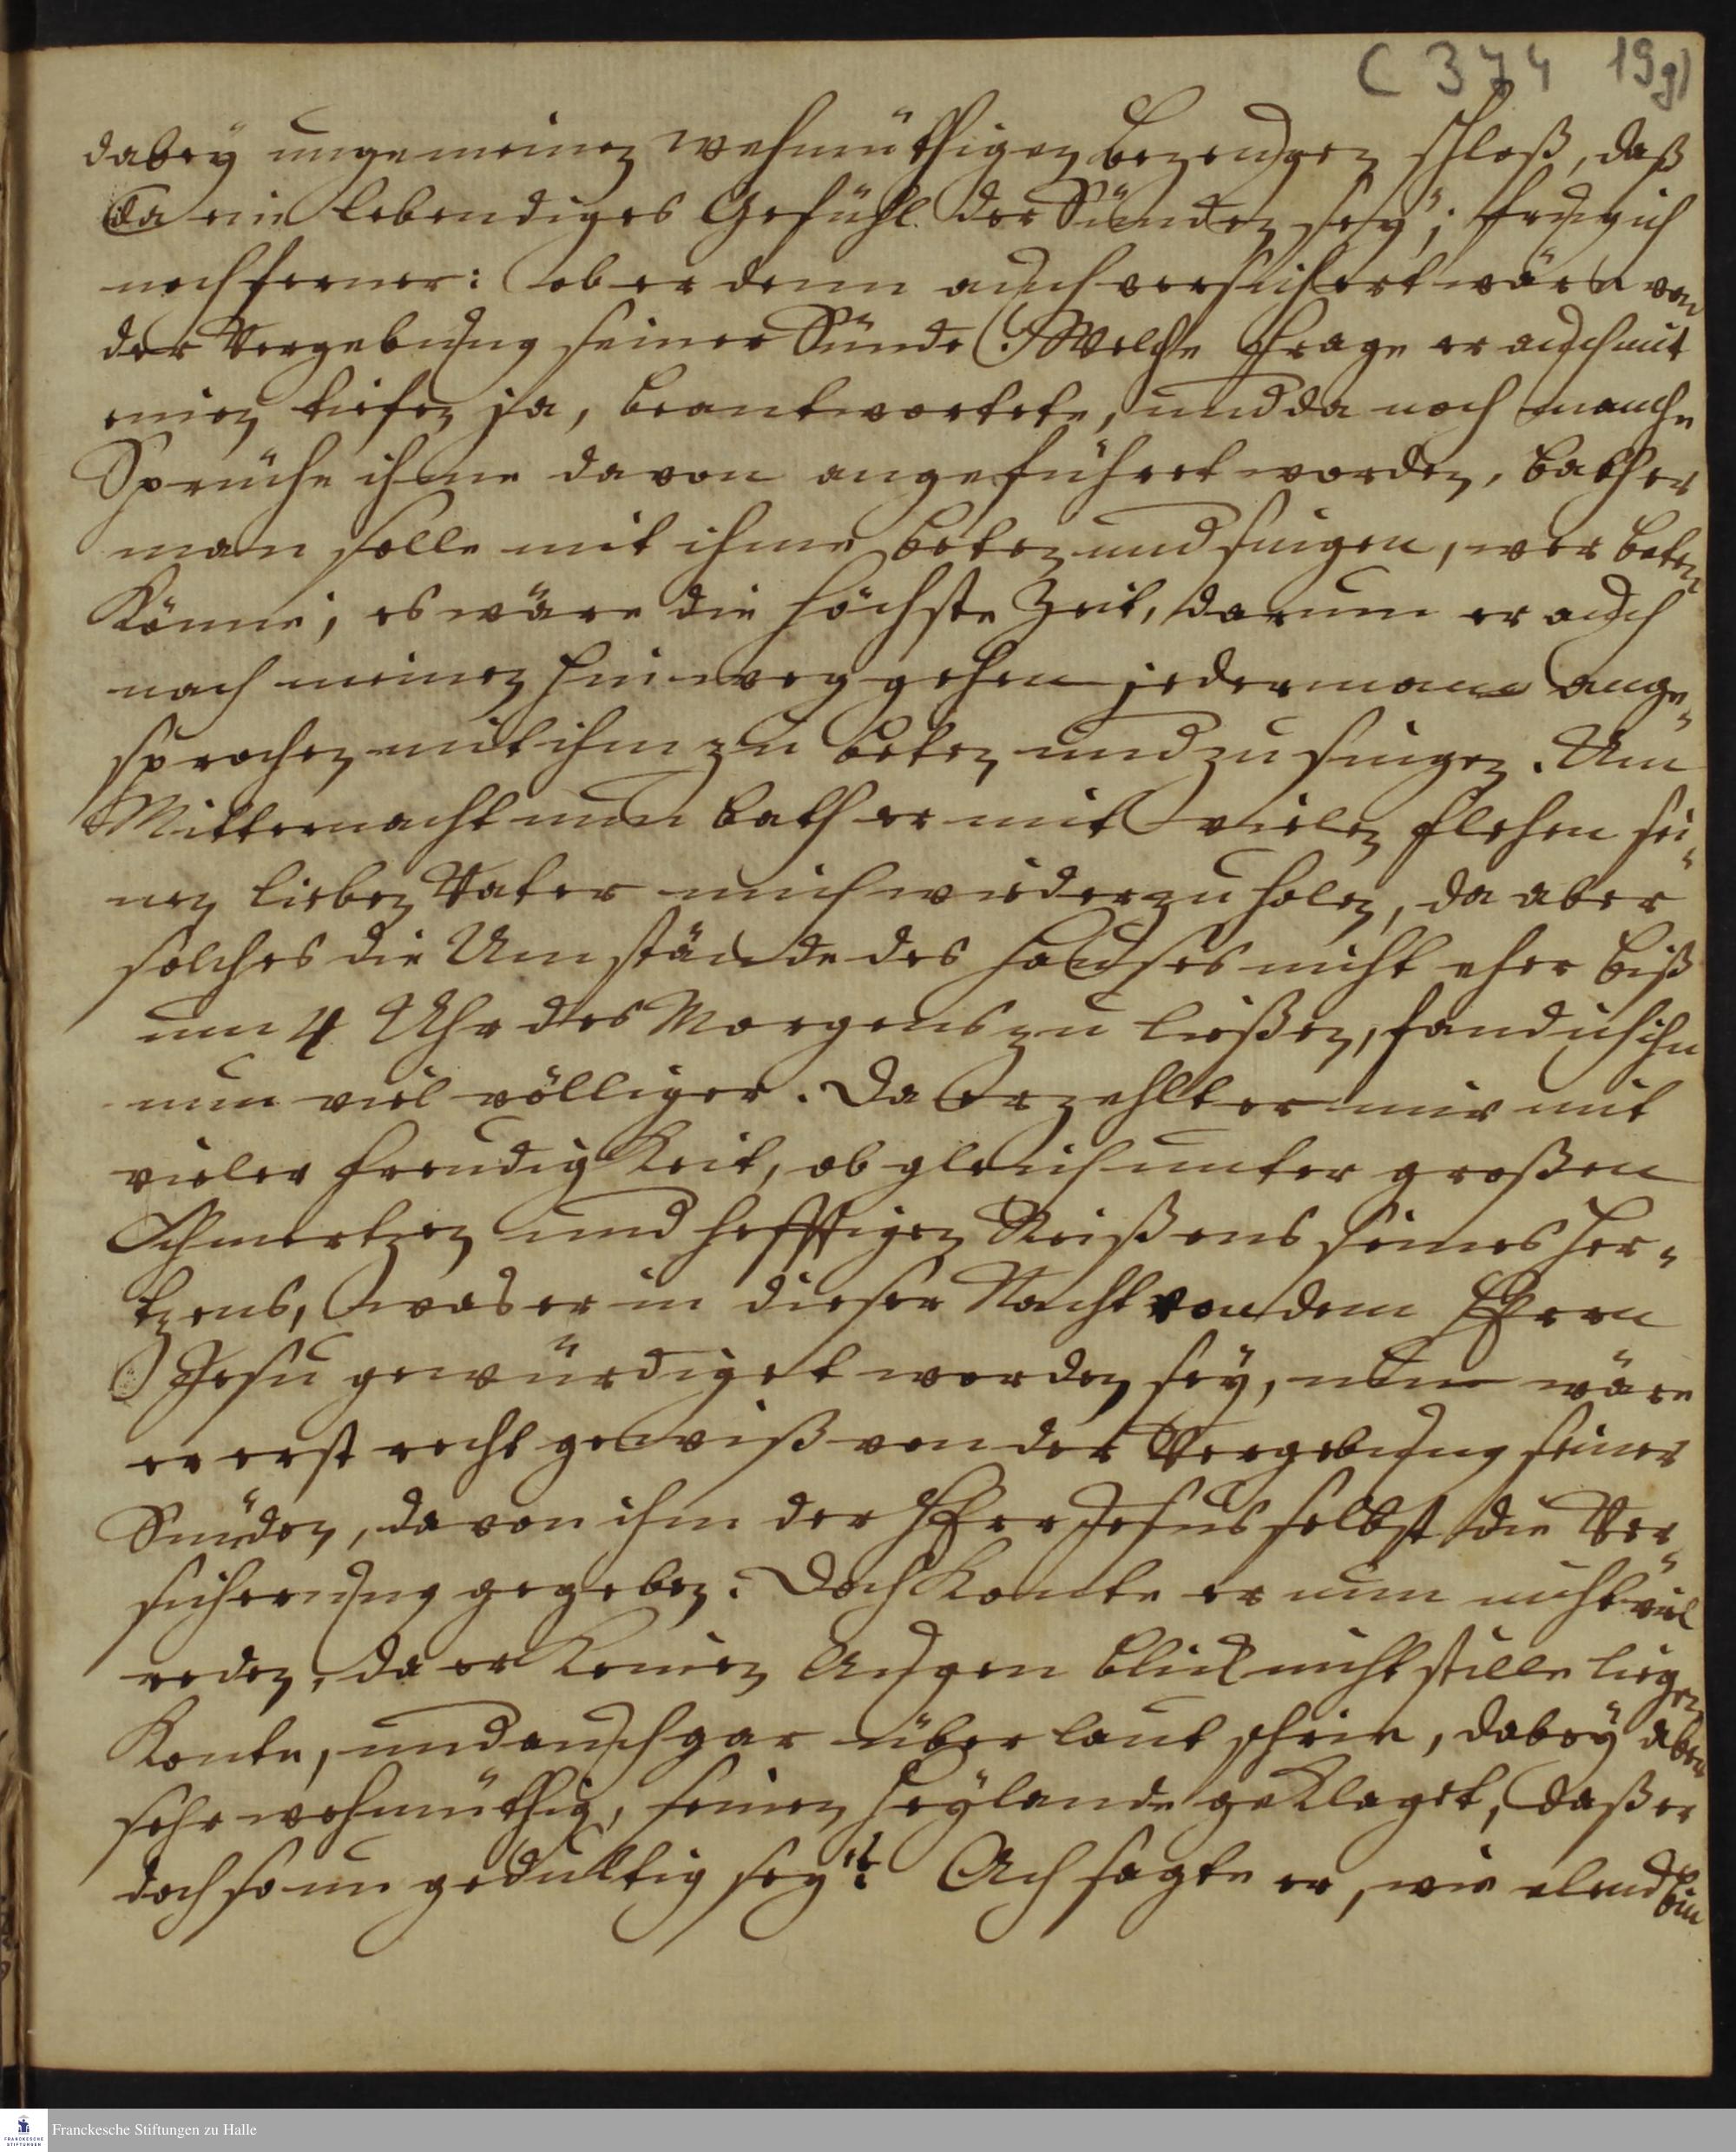 C 374 19g)
dabey ungemeinen wehmüthigen bezeugen schloß, daß
da ein lebendiges Gefühl der Sünden sey; frug ich
noch ferner: ob er denn auch versichert wäre von
der Vergebung seiner Sünde? Welche Frage er auch mit
einen tiefen ja, beantwortete, und da noch manche
Sprüche ihme davon angeführet worden, bath er
man solle mit ihme beten und singen, wer beten
könne; es wäre die höchste Zeit, darum er auch
nach meinen hinweg gehen jedermann ange„
sprochen mit ihm zu beten und zu singen. Um
Mitternacht nun bath er mit vielen flehen sei„
nen lieben Vater mich wieder zu holen, da aber
solches die Umstände des Hauses nicht eher biß
um 4 Uhr des Morgens zu ließen, fand ich ihn
nun viel völliger. Da erzehlt er mir mit
vieler freudigkeit, ob gleich unter großen
Schmertzen und hefftigen Reißens seines Her„
tzens, was er in dieser Nacht von dem HErrn
Jesu gewürdiget worden sey, nun wäre
er erst recht gewiß von der Vergebung seiner
Sünden, davon ihm der HErr Jesus selbst die Ver„
sicherung gegeben. Doch konte er nun nicht viel
reden, da er keinen Augen blick nicht stille liegen
konte, und auch gar überlaut schrie, dabey aber
sehr wehmüthig, seinen Heylande geklaget, daß er
doch so un gedultig sey: Ach sagte er, wie elend bin
Franckesche Stiftungen zu Halle
FRANCKESCHE
STIFTUNGEN